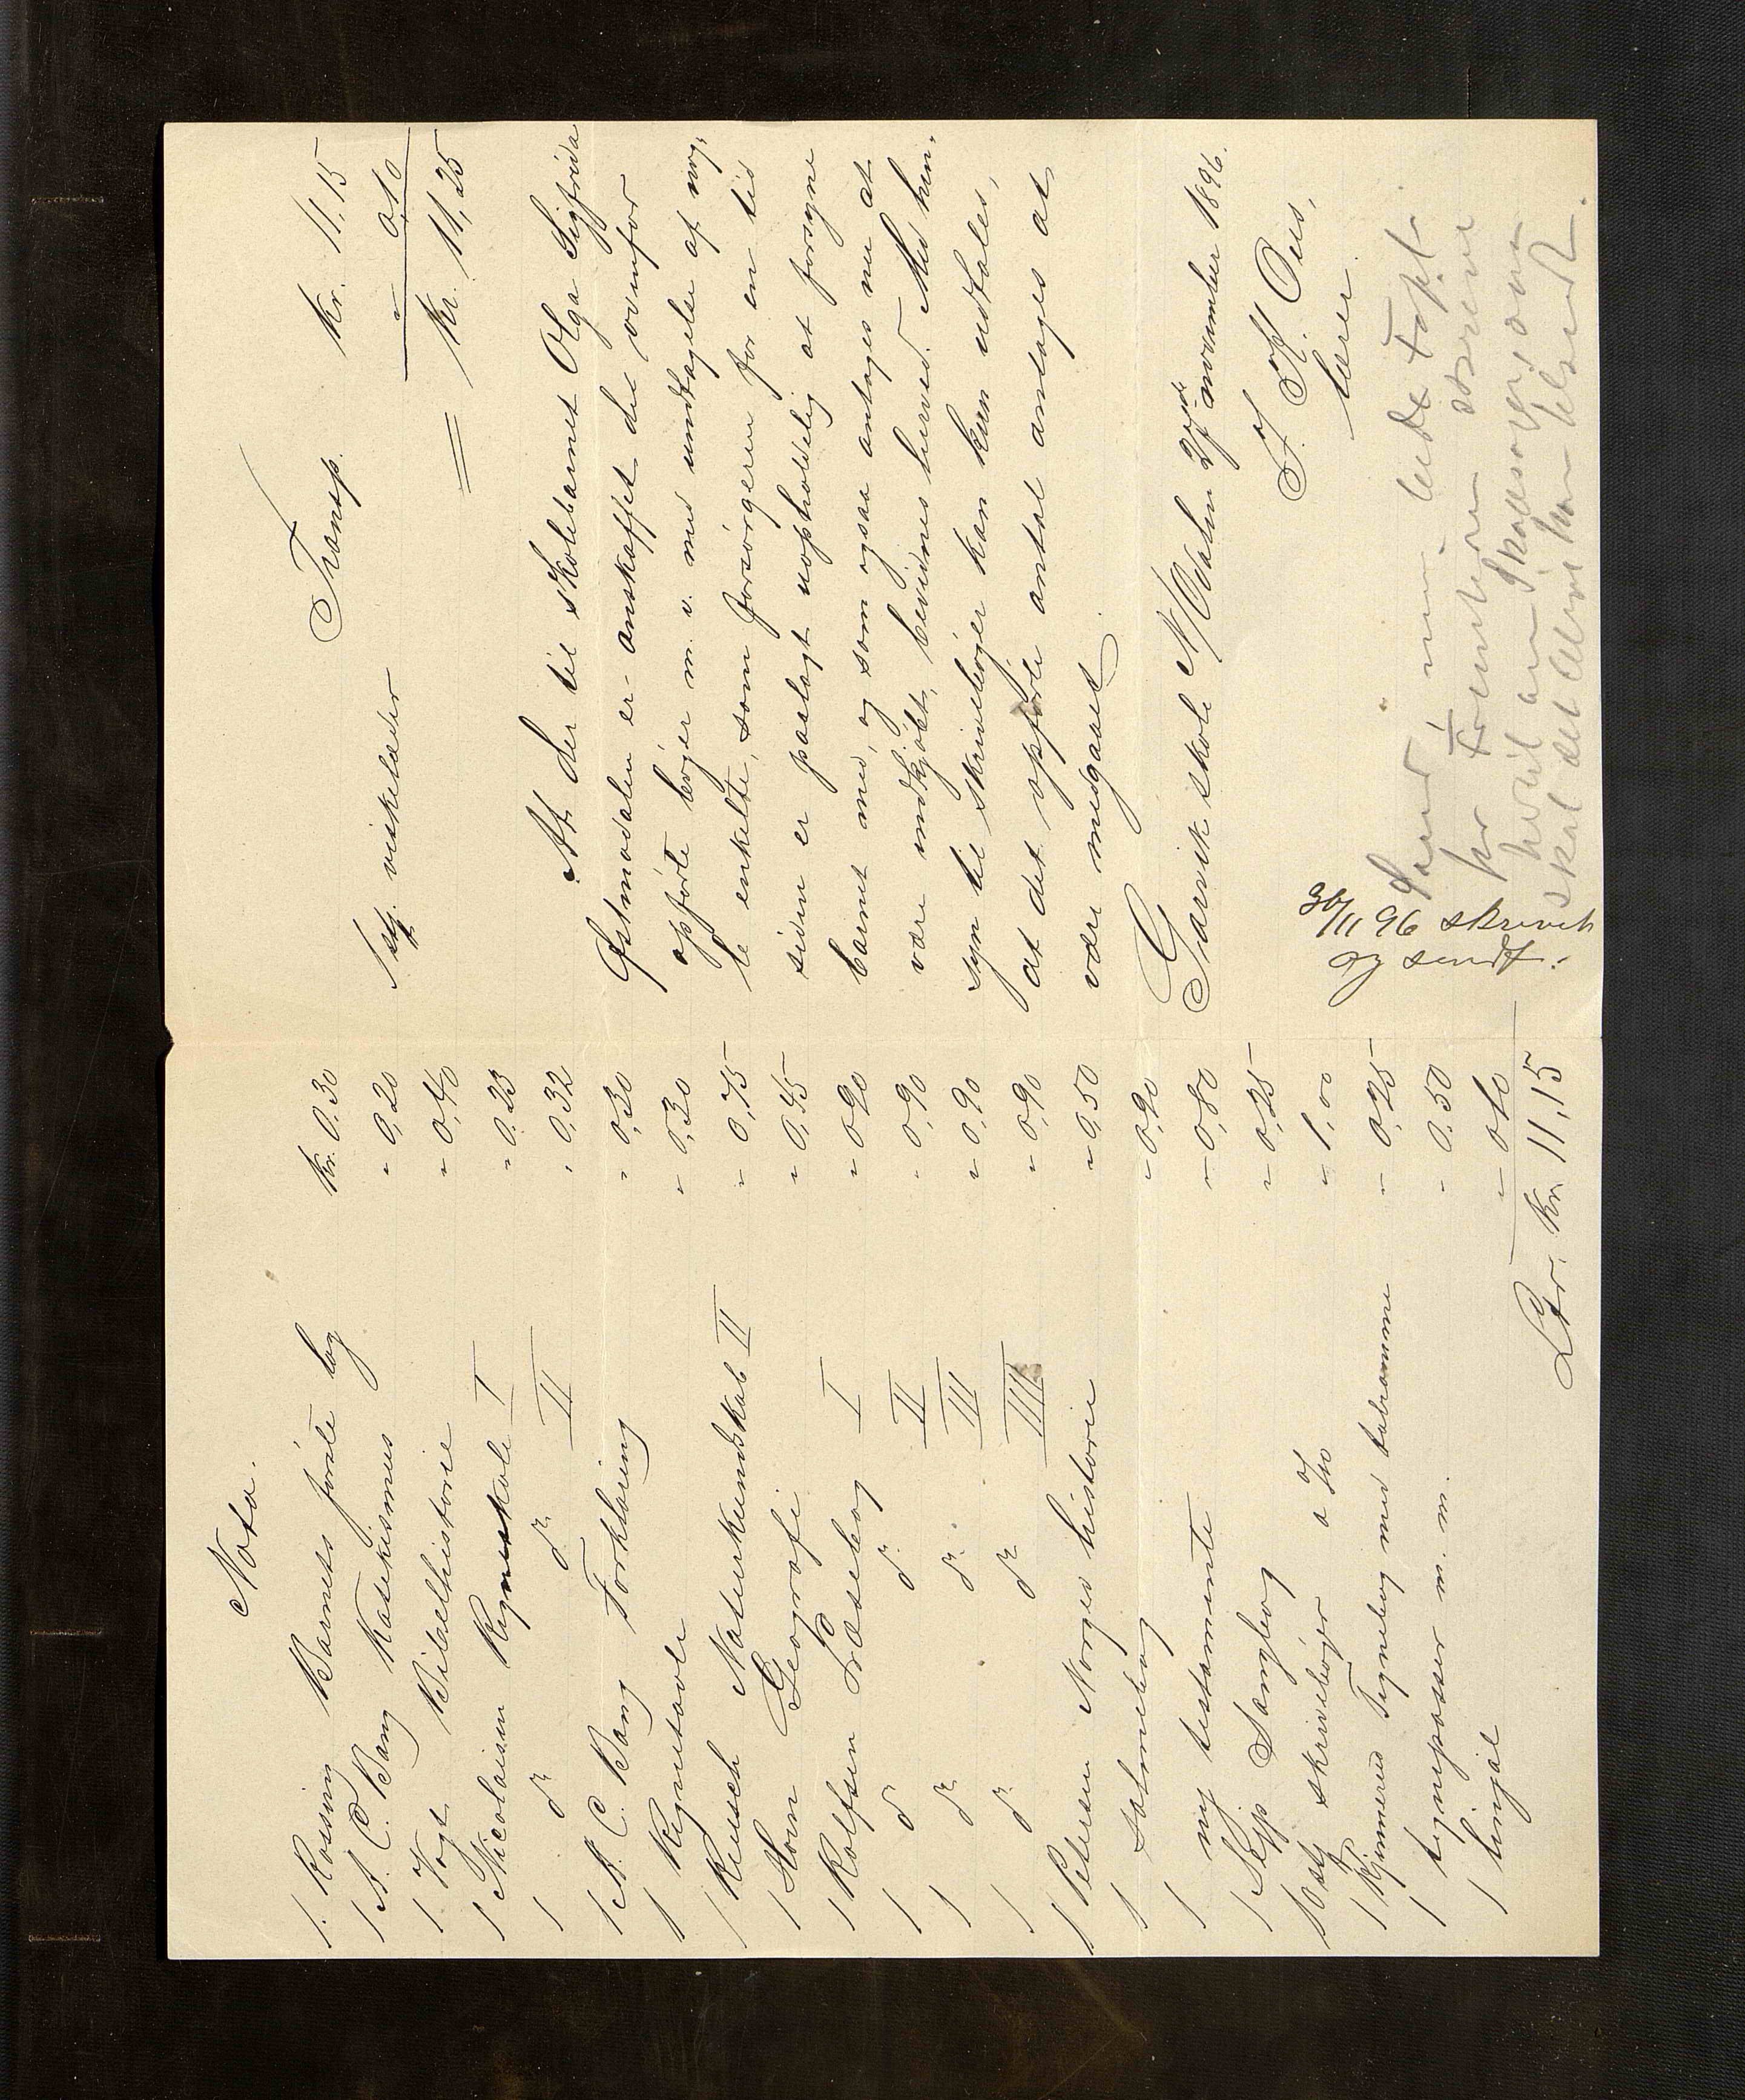 Nota.
1 Rossing Barnets første bog Kr. 0,30
1 A. C. Bang Katekismus - 0,20
1 Vogt Bibelhistorie - 0,40
1 Nicolaisen Regneskole I - 0,23
1 do do II - 0,32
1 A. C. Bang Forklaring - 0,30
1 Regnetavle - 0,30
1 Reusch Naturkundskab II - 0,75
1 Horn Geografi - 0,45
1 Rolfsen Læsebog I - 0,90
1 do do II - 0,90
1 do do III - 0,90
1 do do IIII - 0,90
1 Petersen Norges historie - 0,50
1 salmebog - 0,90
1 ny testamente - 0,80
1 Sejp Sangbog - 0,25
10 stk skrivebøger a 0/10 - 1,00
1 Kjennerud Tegnebog med tabramme - 0,25
1 tegnepasser m. m. - 0,50
1 linjal - 0,10
Ltr. kr. 11,15
Transp. Kr. 11,15
1 stk. viskelæder - 0,10
= Kr. 11,25
At der til skolebarnet Olga Sigfrida
Østmodalen er anskaffet de ovenfor
opførte bøger m. v. med undtagelse af nog-
le enkelte, som forsørgeren for en tid
siden er paalagt uopholdelig at forsyne
barnet med, og som ogsaa antages nu at
være indkjøbt, bevidnes herved. Med hen-
syn til skrivebøger kan kun udtales,
at det opførte antal antages at
være medgaaet.
Garvik skole N/Dalen 27de november 1896.
J. H. Øies,
lærer.
30/11 96 skrevet
og sendt.
Send
hr Forsteheren skrevne
hvortil
skal